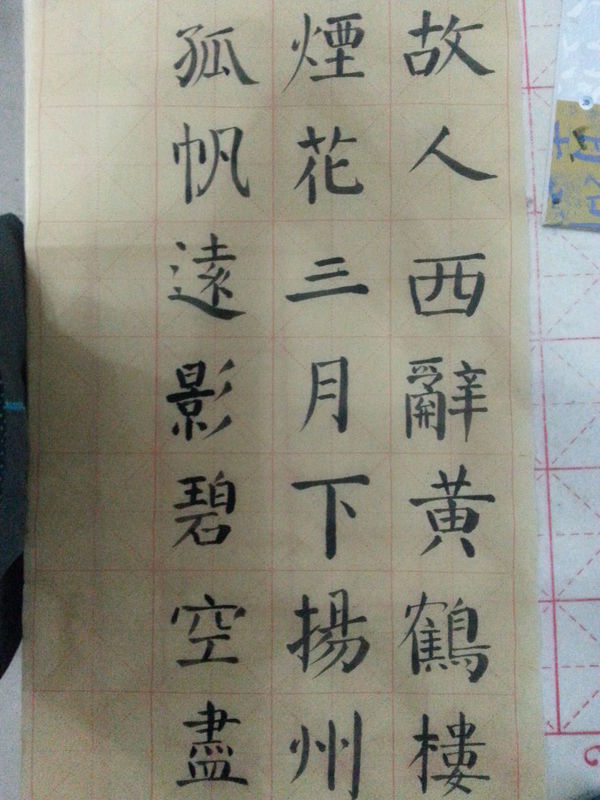 故人西辭黃鶴樓
煙花三月下揚州
孤帆遠影碧空盡